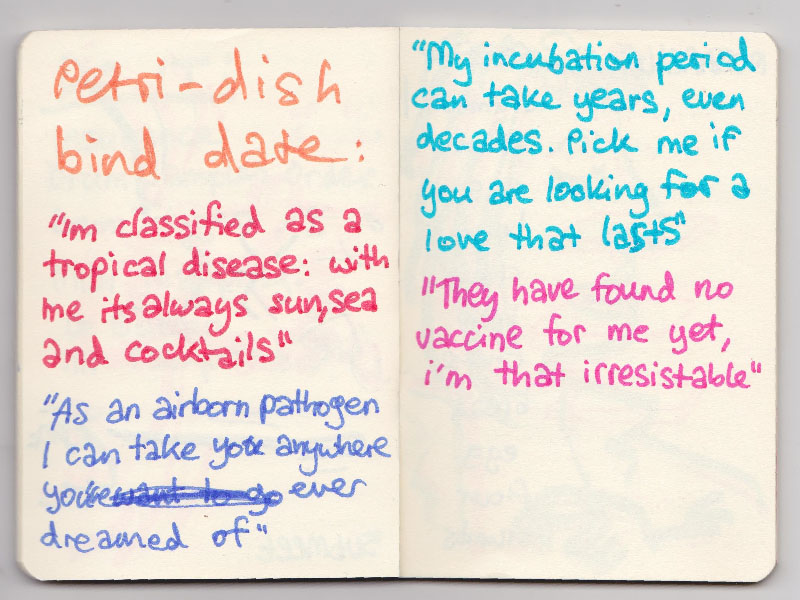 Petri-dish
bind date:
"Im classified as a
tropical disease: with
me its always sun,sea
and cocktails"
"As an airborn pathogen
I can take you anywhere
you've ever
dreamed of"
"My incubation period
can take years, even
decades. Pick me if
you are looking for a
love that lasts"
"They have found no
vaccine for me yet,
i'm that irresistable"